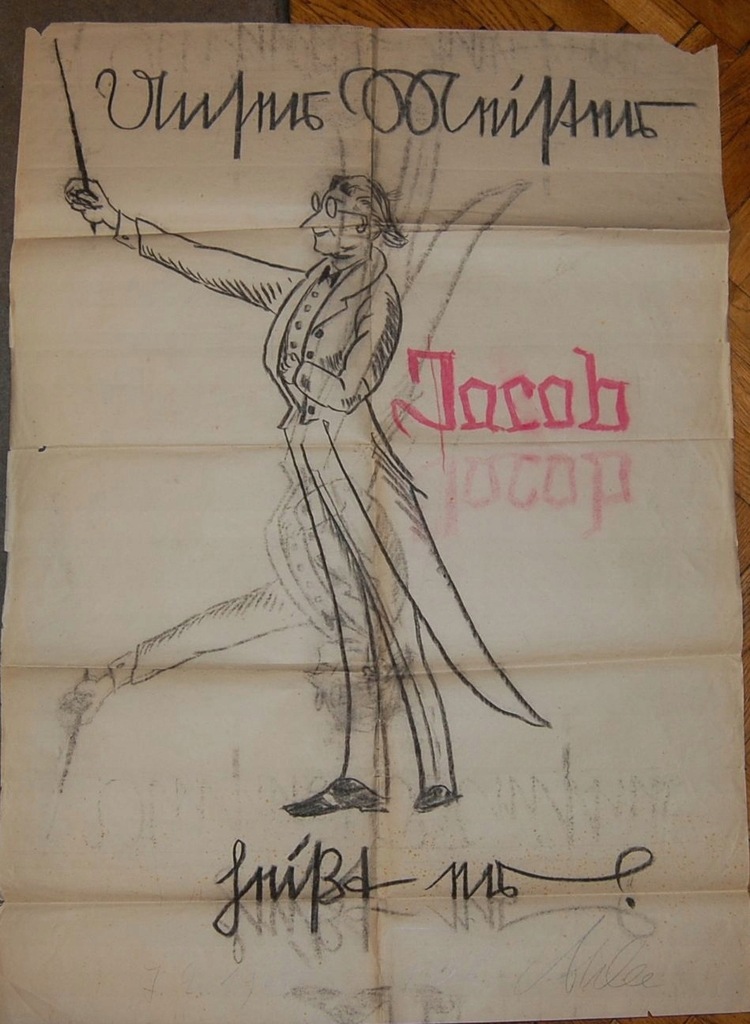 Unser Meister
Jacob
heißt er!